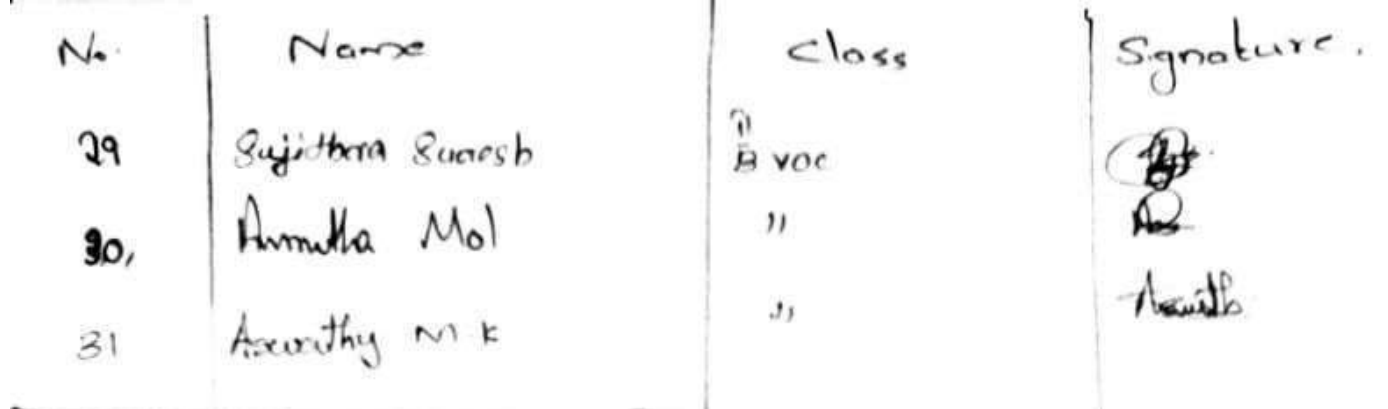 No. Name Class Signature.
29 Sujithra Suresh II B voc
30, Amrutha Mol "
31 Aswathy M.K "